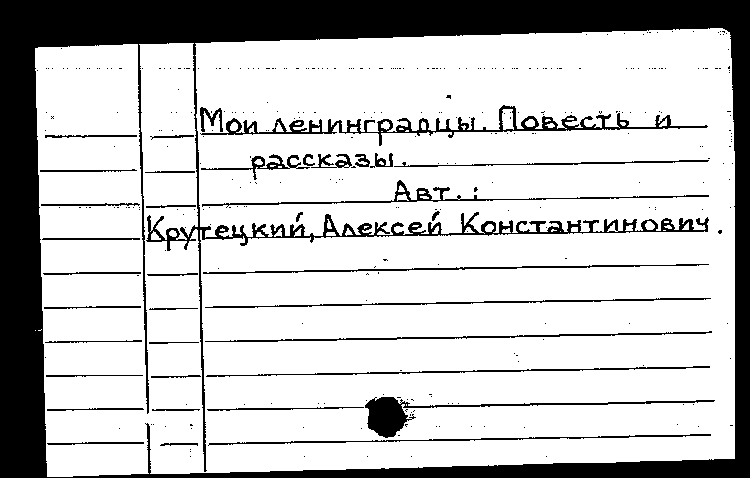 Мои ленинградцы. Повесть и
рассказы.
Авт.:
Крутецкий, Алексей Константинович.